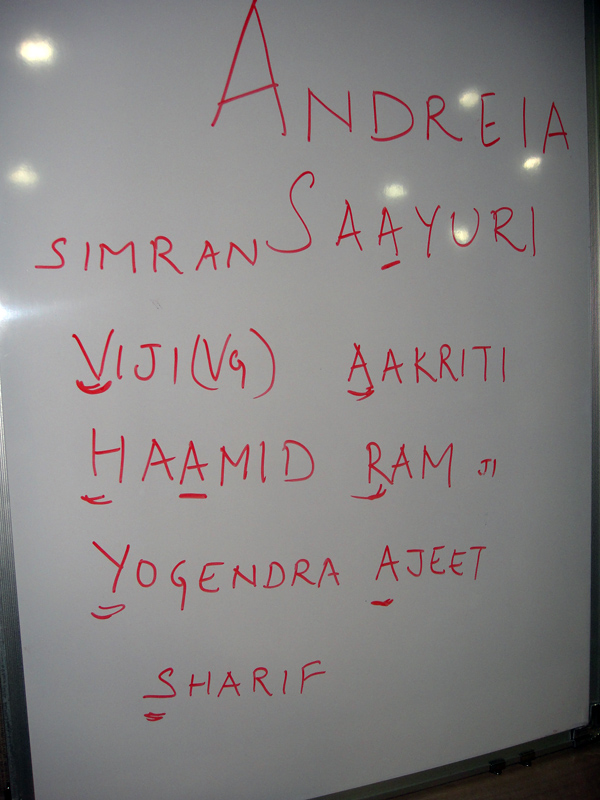 ANDREIA
SIMRAN SAAYURI
VIJI(Vg) AAKRITI
HAAMID RAM JI
YOGENDRA AJEET
SHARIF